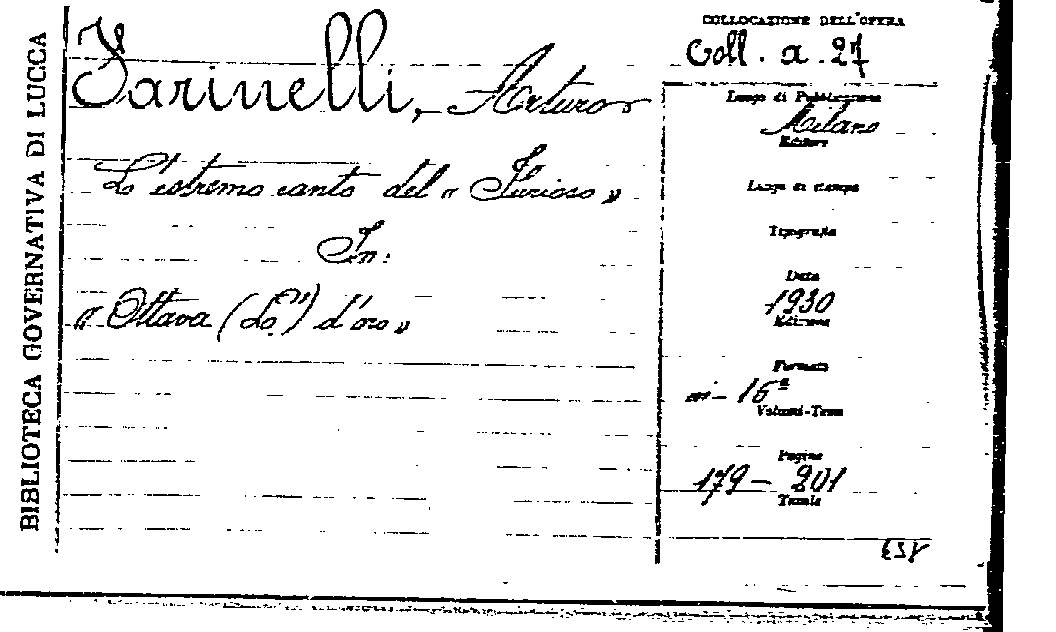 BIBLIOTECA GOVERNATIVA DI LUCCA
Farinelli, Arturo
L'estremo canto del « Furioso »
In:
« Ottava (L') d'oro »
COLLOCAZIONE DELL'OPERA
Coll. a. 27
Luogo di Pubblicazione
Milano
Editore
Luogo di stampa
Tipografia
Data
1930
Edizione
Formato
in-16º
Volumi-Tomo
Pagine
179 - 201
Tavole